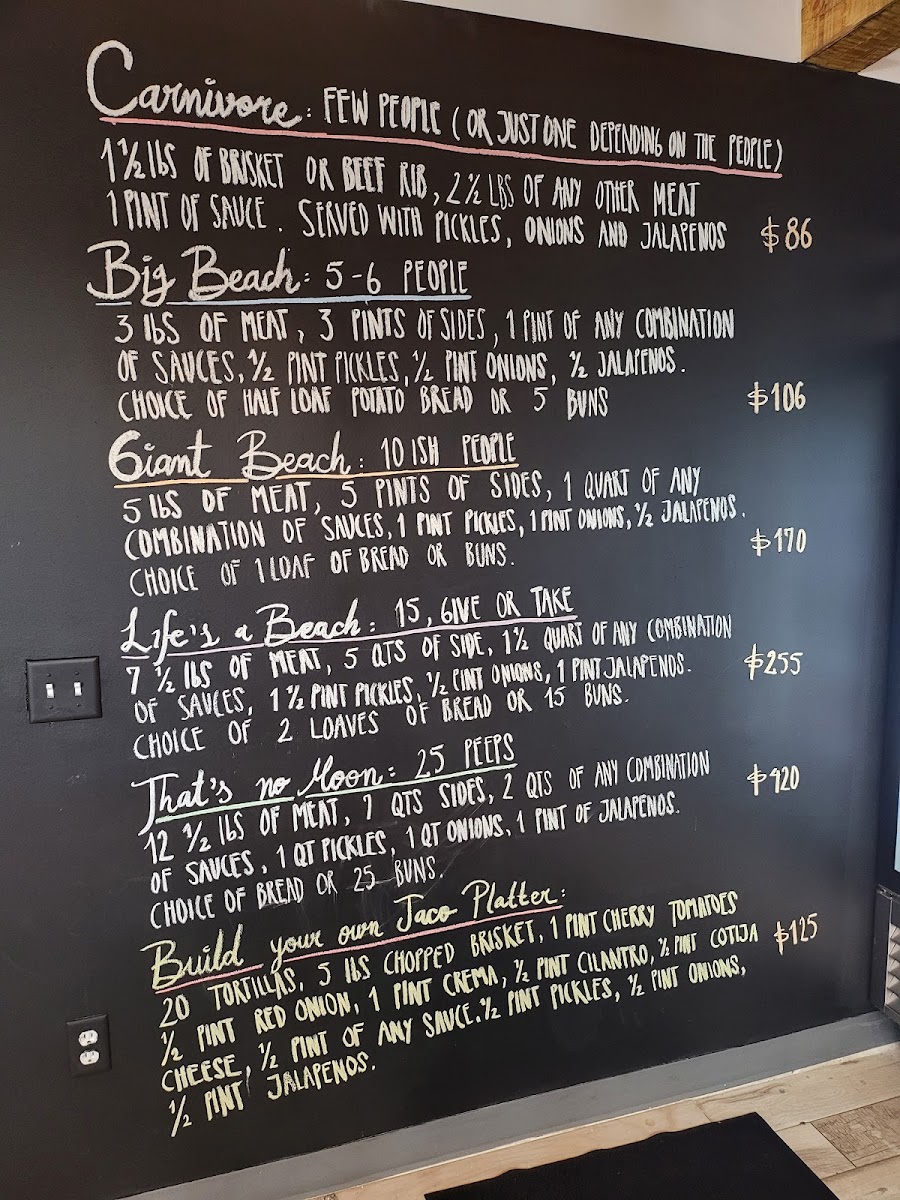 Carnivore: FEW PEOPLE (OR JUST ONE DEPENDING ON THE PEOPLE)
1 ½ lbs OF BRISKET OR BEEF RIB, 2 ½ LBS OF ANY OTHER MEAT
1 PINT OF SAUCE. SERVED WITH PICKLES, ONIONS AND JALAPENOS $86
Big Beach: 5-6 PEOPLE
3 lbs OF MEAT, 3 PINTS OF SIDES, 1 PINT OF ANY COMBINATION
OF SAUCES, ½ PINT PICKLES, ½ PINT ONIONS, ½ JALAPENOS.
CHOICE OF HALF LOAF POTATO BREAD OR 5 BUNS $106
Giant Beach: 10 ISH PEOPLE
5 lbs OF MEAT, 5 PINTS OF SIDES, 1 QUART OF ANY
COMBINATION OF SAUCES, 1 PINT PICKLES, 1 PINT ONIONS, ½ JALAPENOS.
CHOICE OF 1 LOAF OF BREAD OR BUNS. $170
Life's a Beach: 15, GIVE OR TAKE
7 ½ lbs OF MEAT, 5 QTS OF SIDE, 1 ½ QUART OF ANY COMBINATION
OF SAUCES, 1 ½ PINT PICKLES, ½ PINT ONIONS, 1 PINT JALAPENOS. $255
CHOICE OF 2 LOAVES OF BREAD OR 15 BUNS.
That's no Moon: 25 PEEPS
12 ½ lbs OF MEAT, 7 QTS SIDES, 2 QTS OF ANY COMBINATION $420
OF SAUCES, 1 QT PICKLES, 1 QT ONIONS, 1 PINT OF JALAPENOS.
CHOICE OF BREAD OR 25 BUNS.
Build your own Taco Platter:
20 TORTILLAS, 5 lbs CHOPPED BRISKET, 1 PINT CHERRY TOMATOES $125
½ PINT RED ONION, 1 PINT CREMA, ½ PINT CILANTRO, ½ PINT COTIJA
CHEESE, ½ PINT OF ANY SAUCE. ½ PINT PICKLES, ½ PINT ONIONS,
½ PINT JALAPENOS.